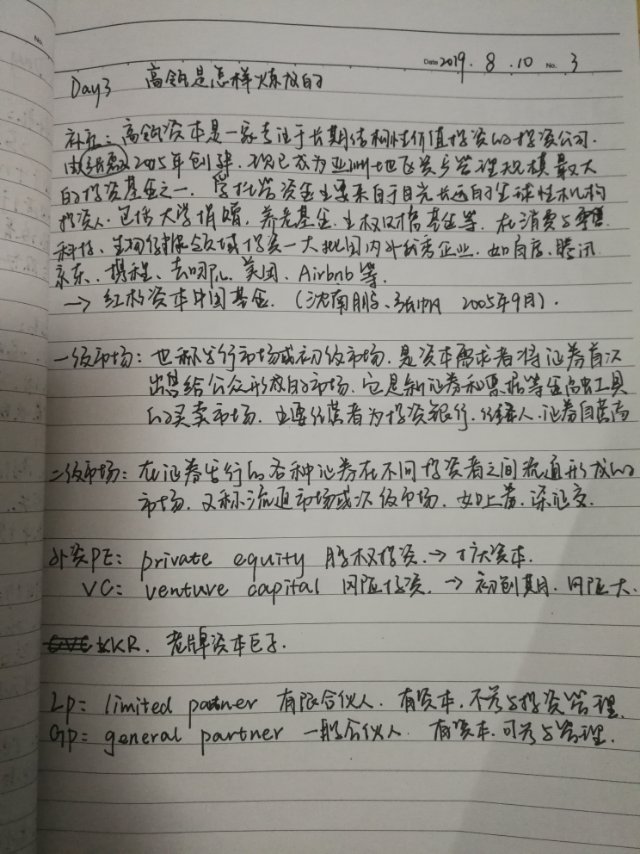 Date 2019.8.10 No. 3
Day3 高瓴是怎样炼成的
补充：高瓴资本是一家专注于长期结构性价值投资的投资公司.
由张磊2005年创建.现已成为亚洲地区资产管理规模最大
的投资基金之一.受托管资金主要来自于目光长远的全球性机构
投资人.包括大学捐赠,养老基金.主权财富基金等.在消费与零售
科技、生物领域投资一大批国内外优秀企业.如百度、腾讯
京东、携程、去哪儿、美团、Airbnb等.
→红杉资本中国基金.(沈南鹏、张帆 2005年9月).
一级市场：也称发行市场或初级市场.是资本需求者将证券首次
出售给公众形成的市场.它是新证券和票据等金融工具
的买卖市场.主要经营者为投资银行.经纪人.证券自营商
二级市场：在证券发行的各种证券在不同投资者之间流通形成的
市场.又称流通市场或次级市场.如上、深交.
外资PE: private equity 股权投资.→扩大资本.
VC: venture capital 风险投资.→初创期.风险大.
KKR.老牌资本巨子.
Lp= limited partner 有限合伙人.有资本.不参与投资管理.
Gp= general partner 一般合伙人.有资本.可参与管理.